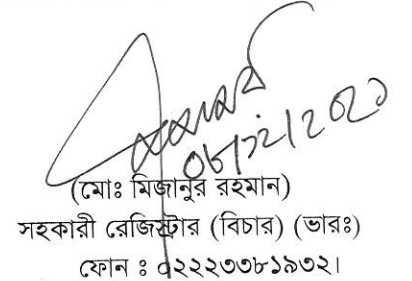 ০৮/১২/২০২১
(মোঃ মিজানুর রহমান)
সহকারী রেজিস্ট্রার (বিচার) (ভারঃ)
ফোন ঃ ০২২২৩৩৮১৯৩২।